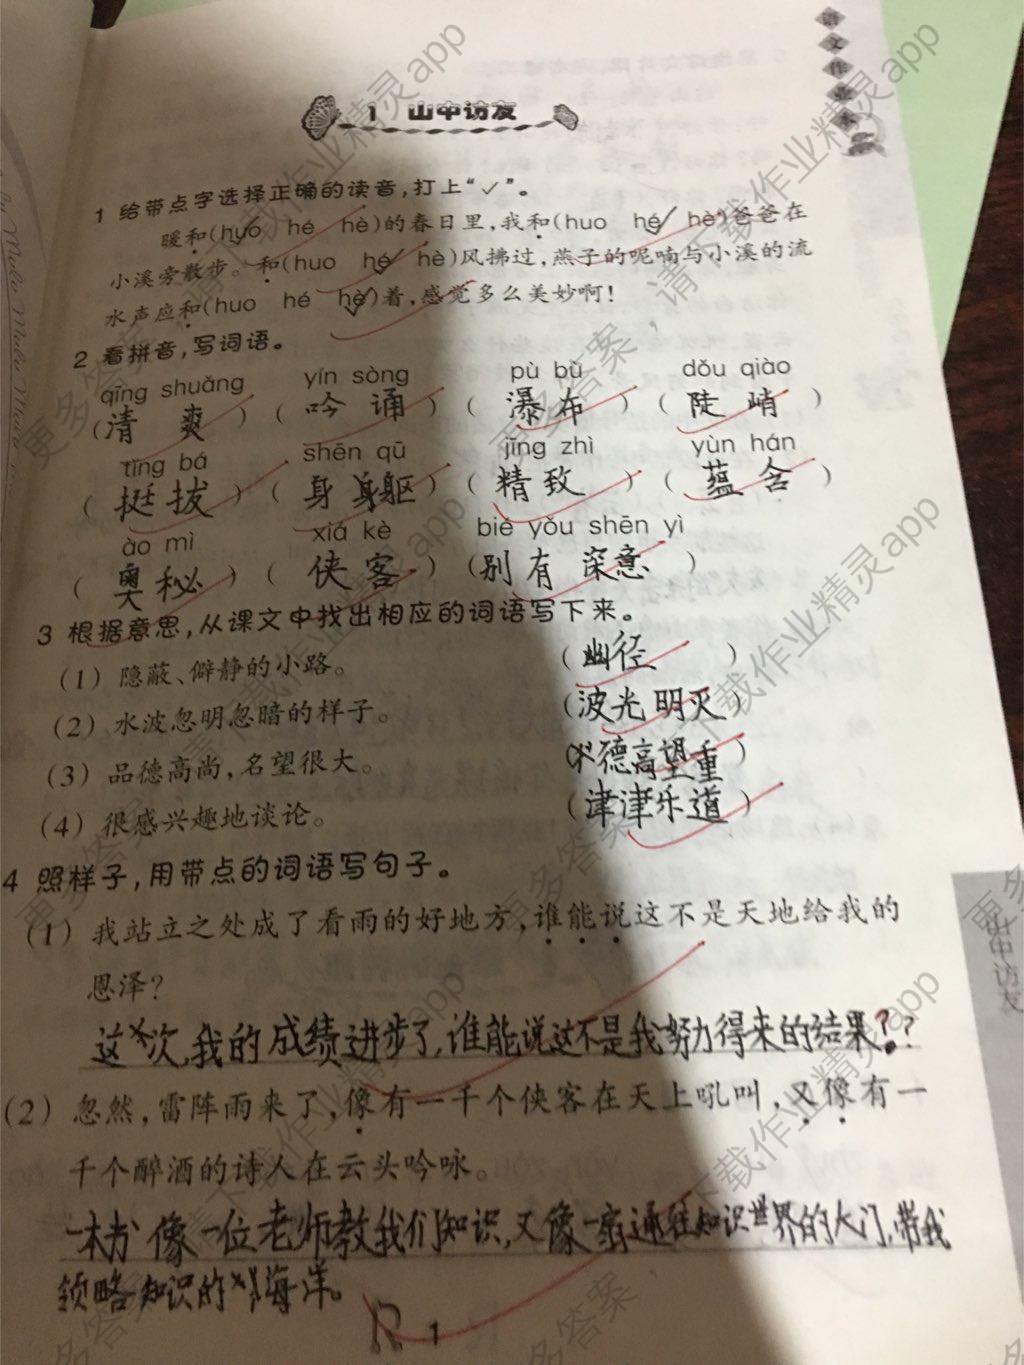 语文作业本
1 山中访友
1 给带点字选择正确的读音,打上“✓”。
暖和(huó hé hè)的春日里,我和(huo hé hè)爸爸在
小溪旁散步。和(huo hé hè)风拂过,燕子的呢喃与小溪的流
水声应和(huo hé hè)着,感觉多么美妙啊!
2 看拼音,写词语。
qīng shuǎng yín sòng pù bù dǒu qiào
(清爽) (吟诵) (瀑布) (陡峭)
tǐng bá shēn qū jīng zhì yùn hán
(挺拔) (身躯) (精致) (蕴含)
ào mì xiá kè bié yǒu shēn yì
(奥秘) (侠客) (别有深意)
3 根据意思,从课文中找出相应的词语写下来。
(1) 隐蔽、僻静的小路。 (幽径)
(2) 水波忽明忽暗的样子。 (波光明灭)
(3) 品德高尚,名望很大。 (德高望重)
(4) 很感兴趣地谈论。 (津津乐道)
4 照样子,用带点的词语写句子。
(1) 我站立之处成了看雨的好地方,谁能说这不是天地给我的
恩泽?
这次,我的成绩进步了,谁能说这不是我努力得来的结果??
(2) 忽然,雷阵雨来了,像有一千个侠客在天上吼叫,又像有一
千个醉酒的诗人在云头吟咏。
一本书像一位老师教我们知识,又像一扇通往知识世界的大门,带我
领略知识的海洋。
1
山中访友
更多答案,请下载作业精灵app